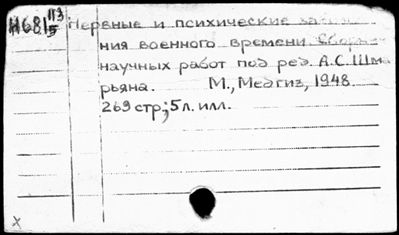 Н681 113/5 Нервные и психические
ния военного времени. Сборник
научных работ под ред. А.С. Шма
рьяна. М., Медгиз, 1948.
269 стр.; 5 л. илл.
х